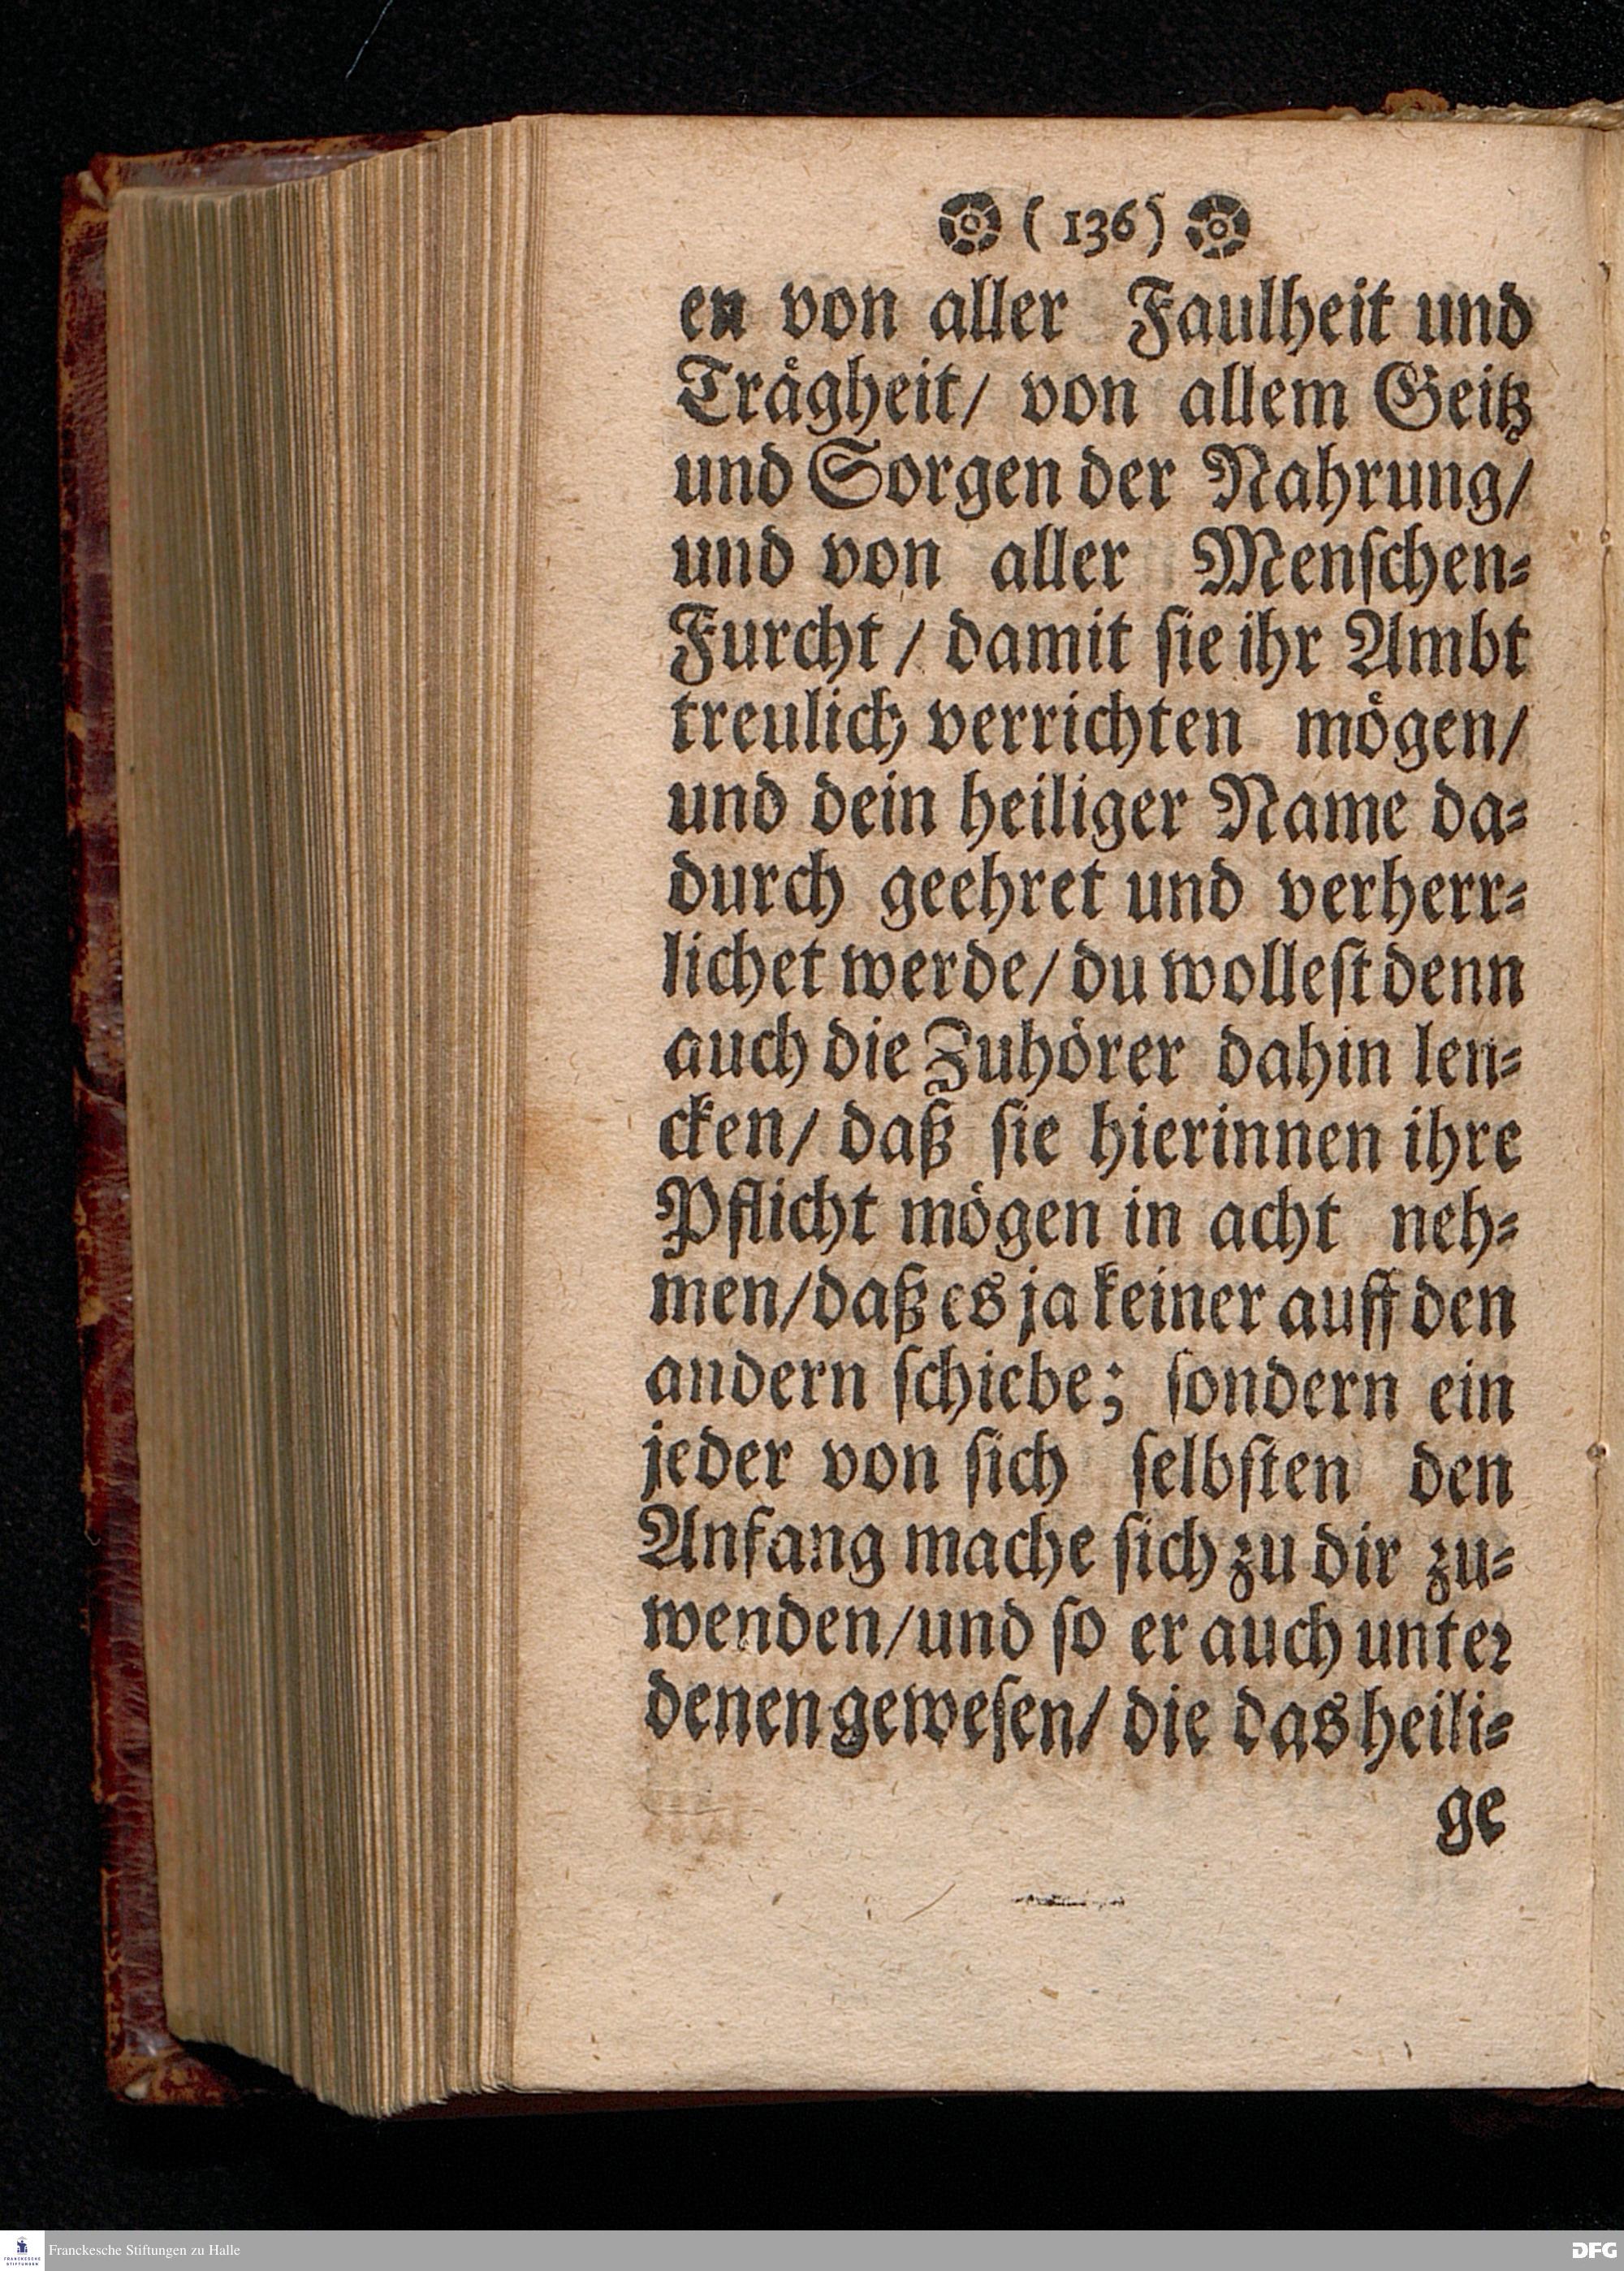 ( 136 )
en von aller Faulheit und
Trägheit/ von allem Geitz
und Sorgen der Nahrung/
und von aller Menschen-
Furcht / damit sie ihr Ambt
treulich verrichten mögen/
und dein heiliger Name da-
durch geehret und verherr-
lichet werde/ du wollest denn
auch die Zuhörer dahin len-
cken/ daß sie hierinnen ihre
Pflicht mögen in acht neh-
men/daß es ja keiner auff den
andern schiebe; sondern ein
jeder von sich selbsten den
Anfang mache sich zu dir zu-
wenden/und so er auch unter
denen gewesen/ die das heili-
ge
Franckesche Stiftungen zu Halle
DFG